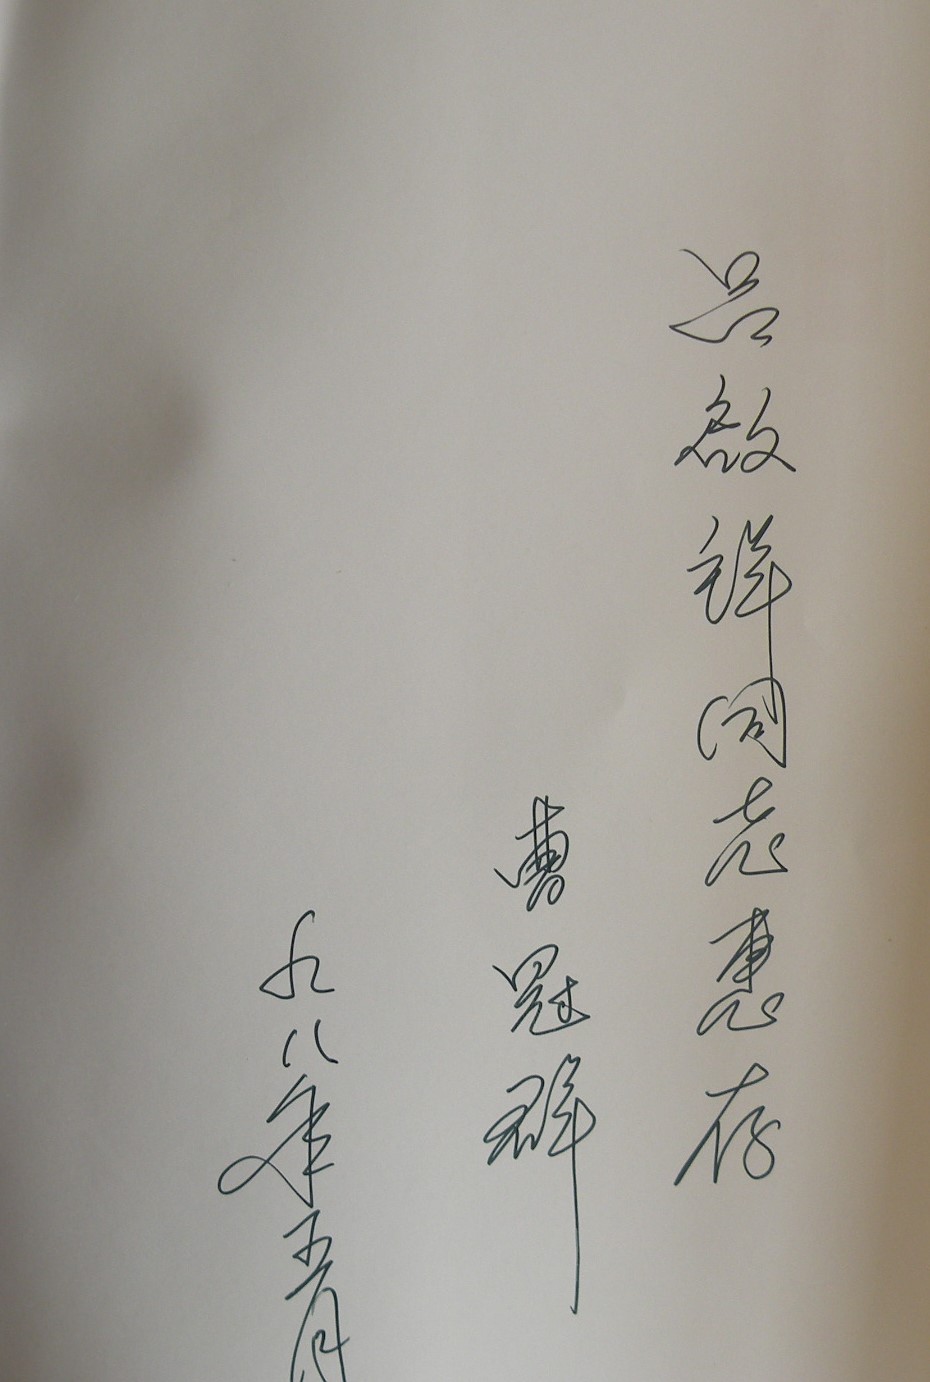 吕啟祥同志惠存
曹冠群
九八年五月